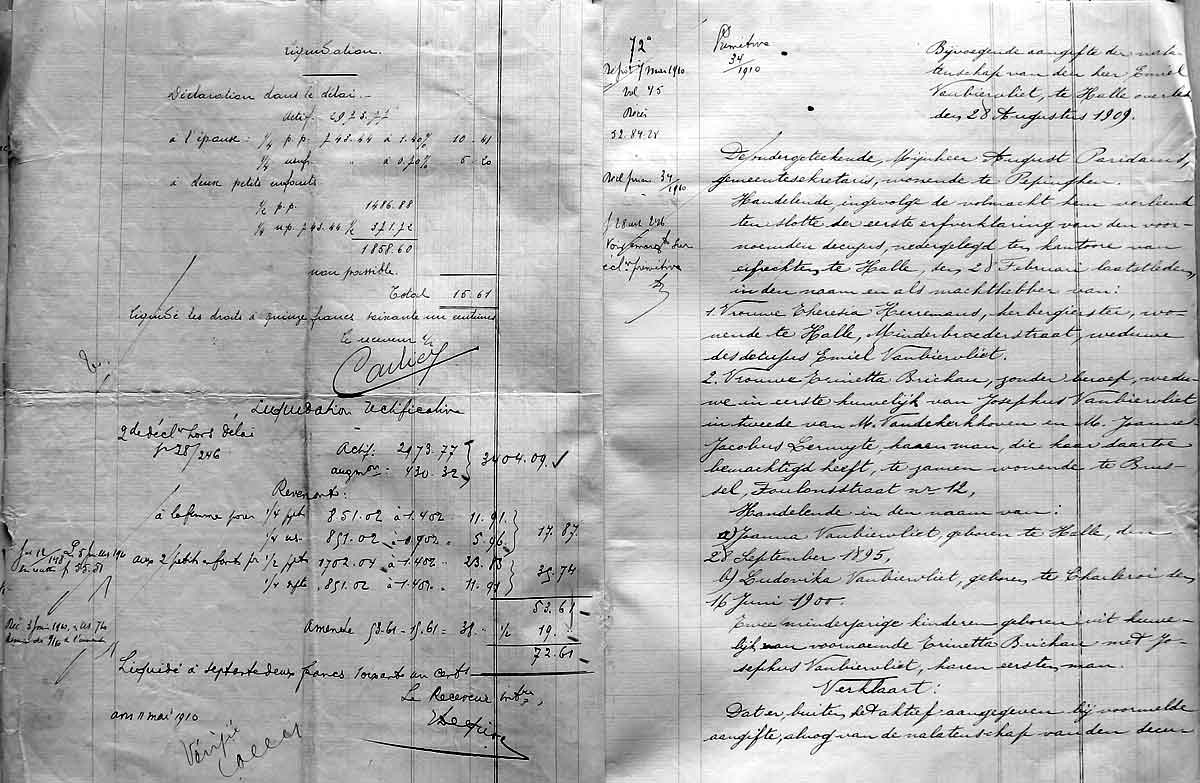 Liquidation.
Déclaration dans le délai.
actif. 2973.77
à l'épouse: ¼ p.p. 743.44 à 1.40% 10.41
à 0,70% 5.20
à deux petits enfants
½ p.p. 1486.88
¼ n.p. 743.44 ½ 371.72
1858.60
non passible.
Total 15.61
Liquidé les droits à quinze francs soixante un centimes
Le receveur
Liquidation rectificative
2de décl. hors délai
246
Actif. 2973.77
augm. 430.32
3404.09
Revenant:
à la femme pour ¼ ppté 851.02 à 1.40% 11.91
¼ us. 851.02 0.70% 5.96
17.87
aux 2 petits enfants pr ½ ppté 1702.04 à 1.40% 23.83
¼ 851.02 à 1.40% 11.91
35.74
53.61
Amende 53.61 - 15.61 = 38 ½ 19.
72.61
Liquidé à septante deux francs soixant un cent
Le Receveur
11 mai 1910
Vérifié
72°
Primitive
34/1910
Dépot 7 mai 1910
vol 45
Recu
32.84.28
34/1910
246
primitive
Bijvoegende aangifte der nala-
tenschap van den heer Emiel
Vanbiervliet, te Halle overleden
den 28 Augustus 1909.
De ondergeteekende, Mijnheer August Paridaens,
gemeentesekretaris, wonende te Pepinghen.
Handelende, ingevolge de volmacht hem verleend
ten slotte der eerste erfverklaring van den voor-
noemden decujus, nedergelegd ten kantoore van
erfrechten te Halle, den 28 Februari laatstleden,
in den naam en als machthebber van:
1. Vrouwe Theresia Herremans, herbergierster, wo-
nende te Halle, Minderbroederstraat, weduwe
des decujus Emiel Vanbiervliet.
2. Vrouwe Trinetta Brichau, zonder beroep, wedu-
we in eerste huwelijk van Josephus Vanbiervliet
in tweede van M. Vandekerkhoven en M. Joannes
Jacobus Lermyte, haren man, die haar daartoe
bemachtigd heeft, te zamen wonende te Brus-
sel, Foulonsstraat nr 12,
Handelende in den naam van:
a) Joanna Vanbiervliet, geboren te Halle, den
28 September 1895,
b) Ludovika Vanbiervliet, geboren te Charleroi den
16 Juni 1900.
Twee minderjarige kinderen geboren uit huwe-
lijk van voornoemde Trinetta Brichau met Jo-
sephus Vanbiervliet, haren eersten man.
Verklaart:
Dat er, buiten het aktief aangegeven bij voormelde
aangifte, alnog van de nalatenschap van den decu-